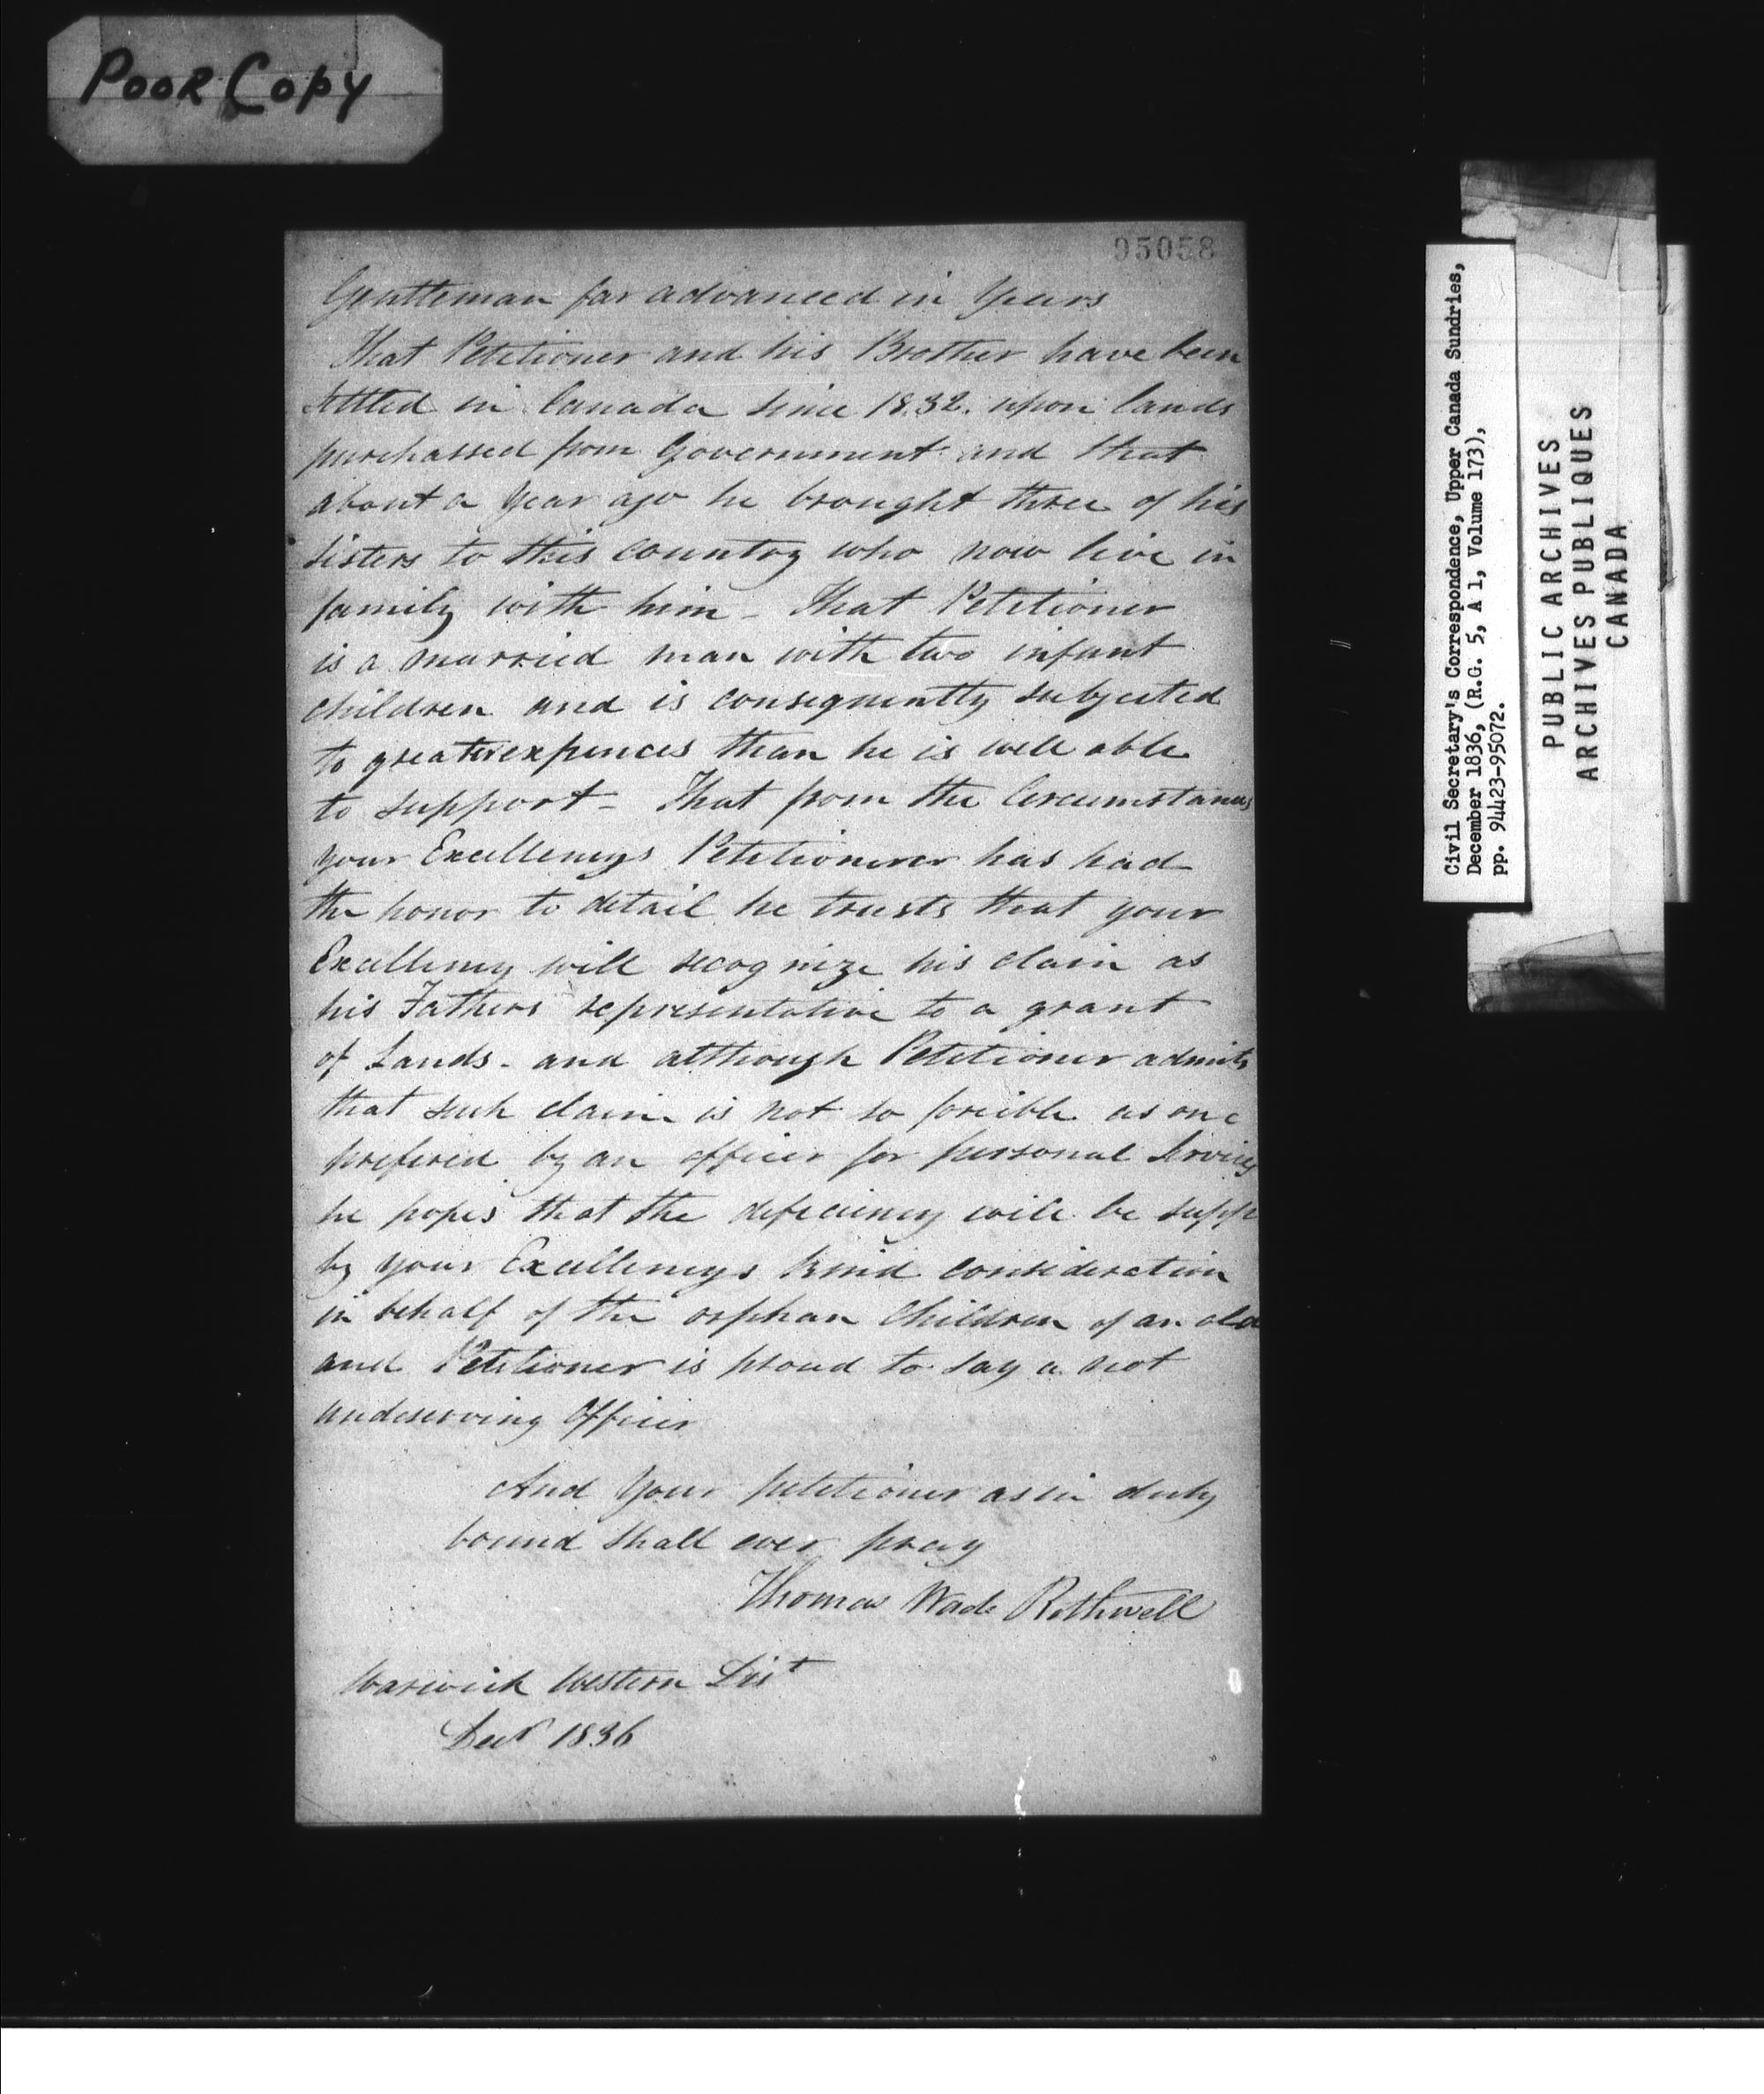 Poor Copy
95058
Gentleman far advanced in Years
That Petitioner and his Brother have been
settled in Canada since 1832. upon lands
purchassed from Government and that
about a Year ago he brought three of his
sisters to this country who now live in
family with him - That Petitioner
is a married man with two infant
children and is consequently subjected
to greater expences than he is well able
to support - That from the Circumstances
your Excellencys Petitionerer has had
the honor to detail he trusts that your
Excellency will recognize his claim as
his Fathers representative to a grant
of Lands - and although Petitioner admits
that such claim is not so forcible as one
prefered by an officer for personal Services
he hopes that the deficiency will be supp
by your Excellencys kind consideration
in behalf of the orphan Children of an old
and Petitioner is proud to say a not
undeserving Officer
And Your petitioner as in duty
bound shall ever pray
Thomas Wade Rothwell
Warwick Western Dist
Decr 1836
Civil Secretary's Correspondence, Upper Canada Sundries,
December 1836, (R.G. 5, A 1, Volume 173),
pp. 94423-95072.
PUBLIC ARCHIVES
ARCHIVES PUBLIQUES
CANADA